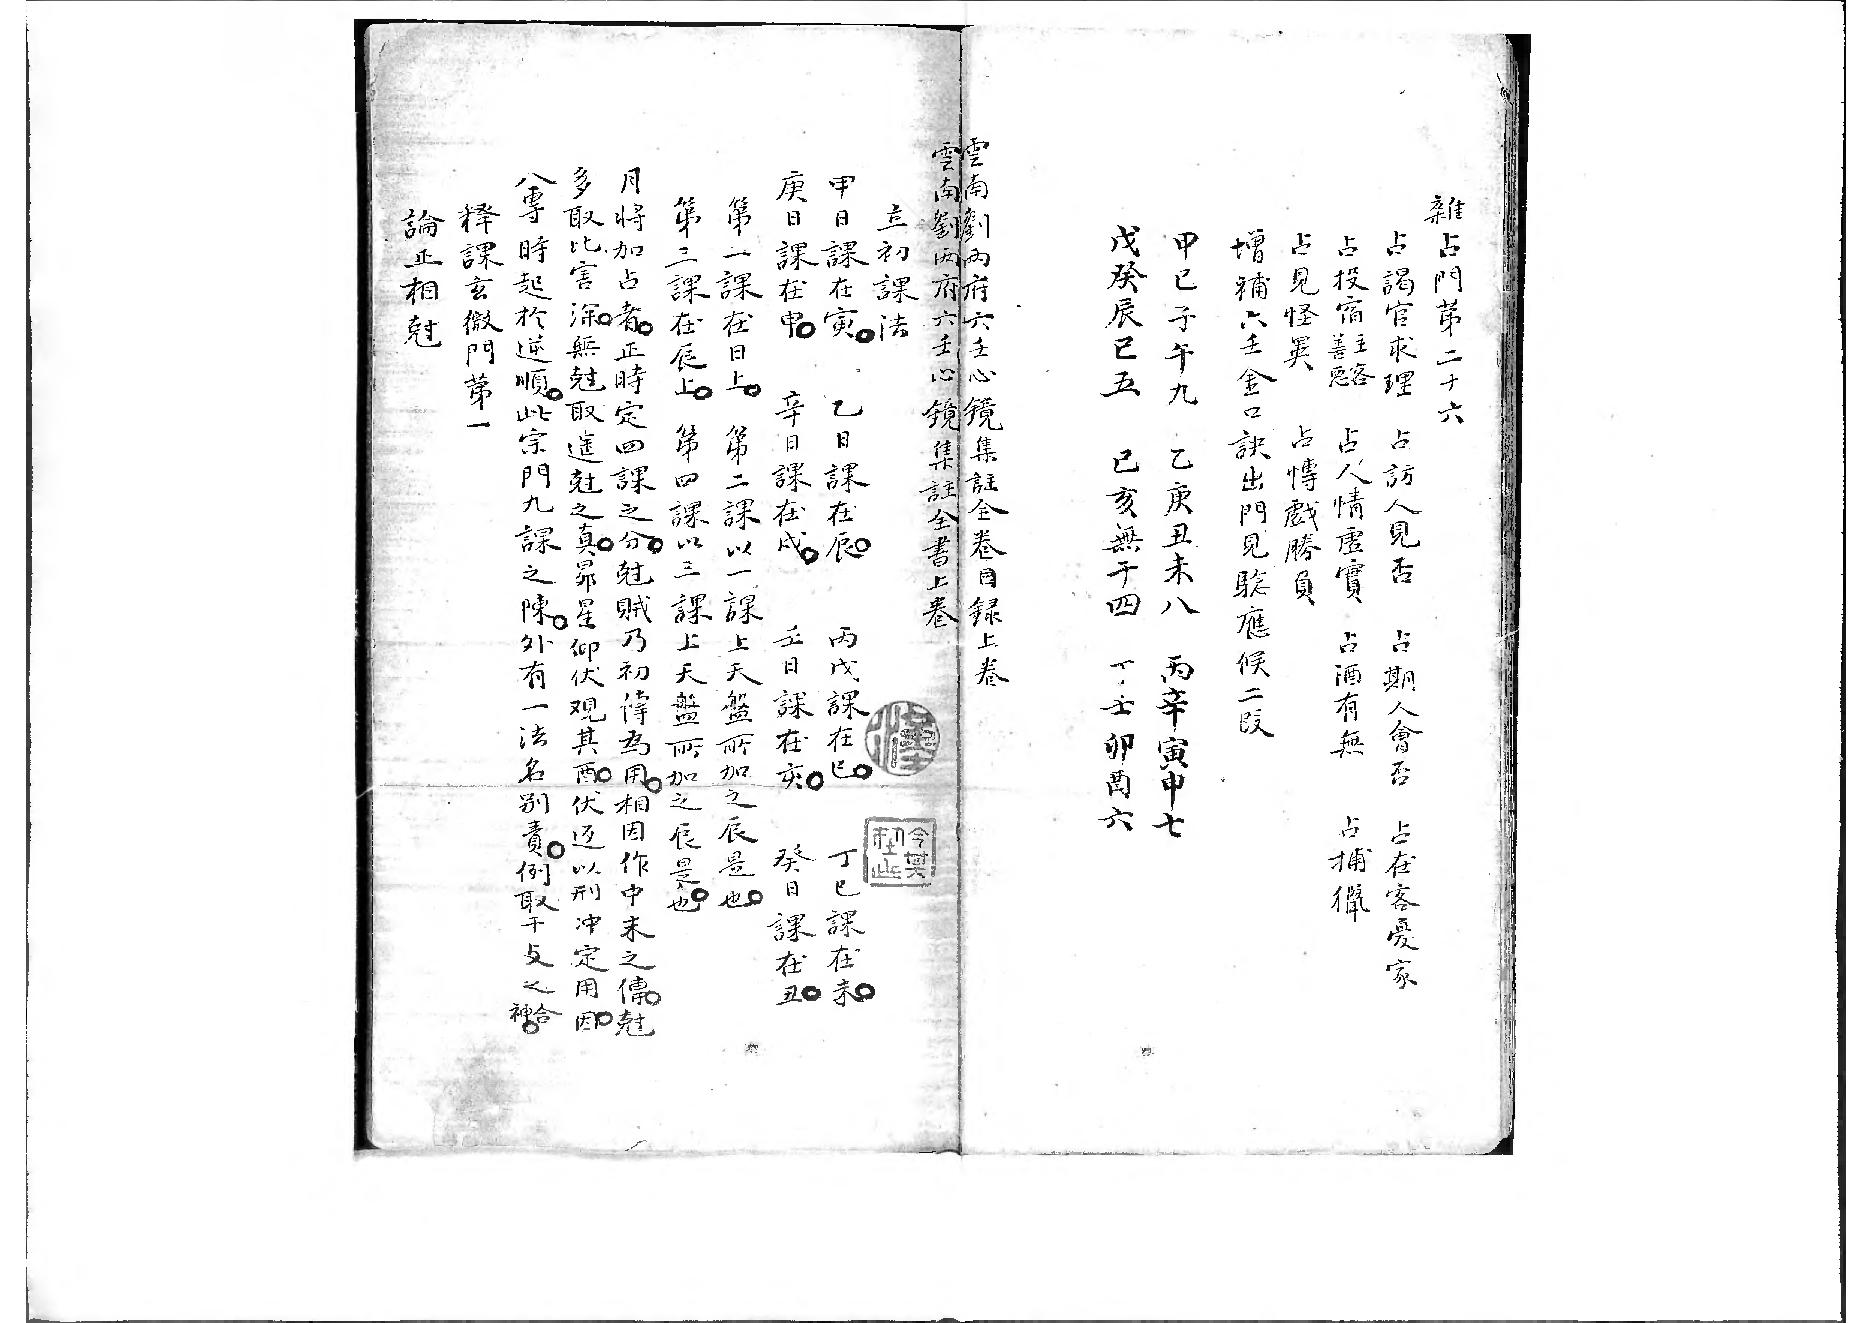 雜占門第二十六
占謁官求理　占訪人見否　占期人會否　占在客憂家
占投宿主客善惡　占人情虛實　占酒有無　占捕獵
占見怪異　占愽戲勝負
增補六壬金口訣出門見驗應候二段
甲己子午九　乙庚丑未八　丙辛寅申七
戊癸辰巳五　巳亥無干四　丁壬卯酉六
雲南劉丙府六壬心鏡集註全卷目録上卷
雲南劉丙府六壬心鏡集註全書上卷
立初課法
甲日課在寅　乙日課在辰　丙戊課在巳　丁己課在未
庚日課在申　辛日課在戌　壬日課在亥　癸日課在丑
第一課在日上　第二課以一課上天盤所加之辰是也
第三課在辰上　第四課以三課上天盤所加之辰是也
月將加占者正時定四課之分尅賊乃初傳為用相因作中末之傳尅
多取比害深無尅取遙尅之真昴星仰伏观其酉伏返以刑冲定用因
八專時起於逆順此宗門九課之陳外有一法名别責例取干支之合神
釋課玄微門第一
論正相尅